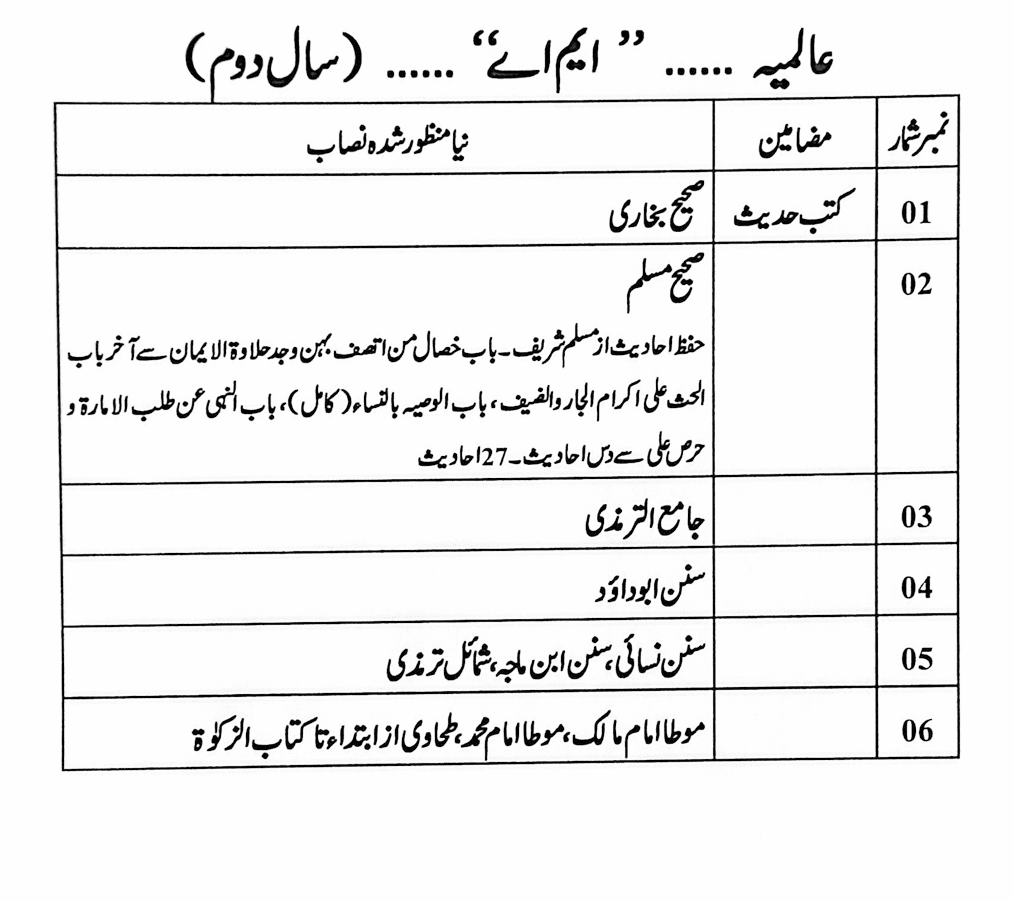 عالمیہ ...... ”ایم اے“ ...... (سال دوم)
نمبر شمار مضامین نیا منظور شدہ نصاب
01 کتب حدیث صحیح بخاری
02 صحیح مسلم
حفظ احادیث از مسلم شریف۔ باب خصال من اتصف بہن وجد حلاوۃ الایمان سے آخر باب
الحث علی اکرام الجار والضیف، باب الوصیہ بالنساء (کامل)، باب النہی عن طلب الامارۃ و
حرص علی سے دس احادیث۔ 27 احادیث
03 جامع الترمذی
04 سنن ابوداؤد
05 سنن نسائی، سنن ابن ماجہ، شمائل ترمذی
06 موطا امام مالک، موطا امام محمد، طحاوی از ابتداء تا کتاب الزکوٰۃ